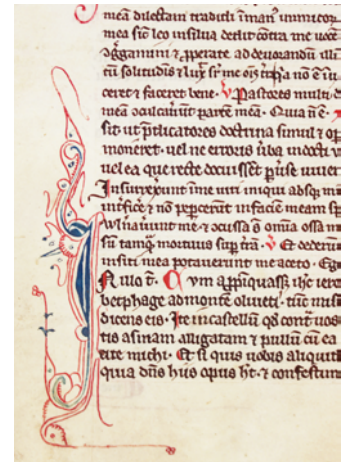 meā dilectam traditi ī man' inimicor
mea sic̄ leo in silua dedit cōtra me uocē
ɔggamini ⁊ ꝓperate ad deuorandū illū
tū solitudīs ⁊ nō ē
ceret ⁊ faceret bene. Pastores multi
meā ɔculcauīt partē meā. Quia n̄ ē.
sit ut p̄dicatores doctrina simul ⁊ op
moneret. uel ne erroris ūba indocti
uel ea que recte docuissēt
Insurexunt ī me uiri iniqui absq; mīa
⁊ nō peꝑcerunt in faciē meam
Vlnauunt me ⁊ ɔcussa sī omīa ossa
sū tamq̄ mortuus suꝑ t̄rā. Et dederūt
in siti mea potauerunt me aceto. Ego
N illo t̄. Cum app̄iquassȝ ih̄c iero
bethphage ad montē oliueti. tūc misit
dicens eis. Ite in castellū qđ cont̄ uos
tis asinam alligatam ⁊ pullū cū ea
cite michi. Et si quis uobis aliquit
quia dn̄s hiis opus ht̄. ⁊ confestim